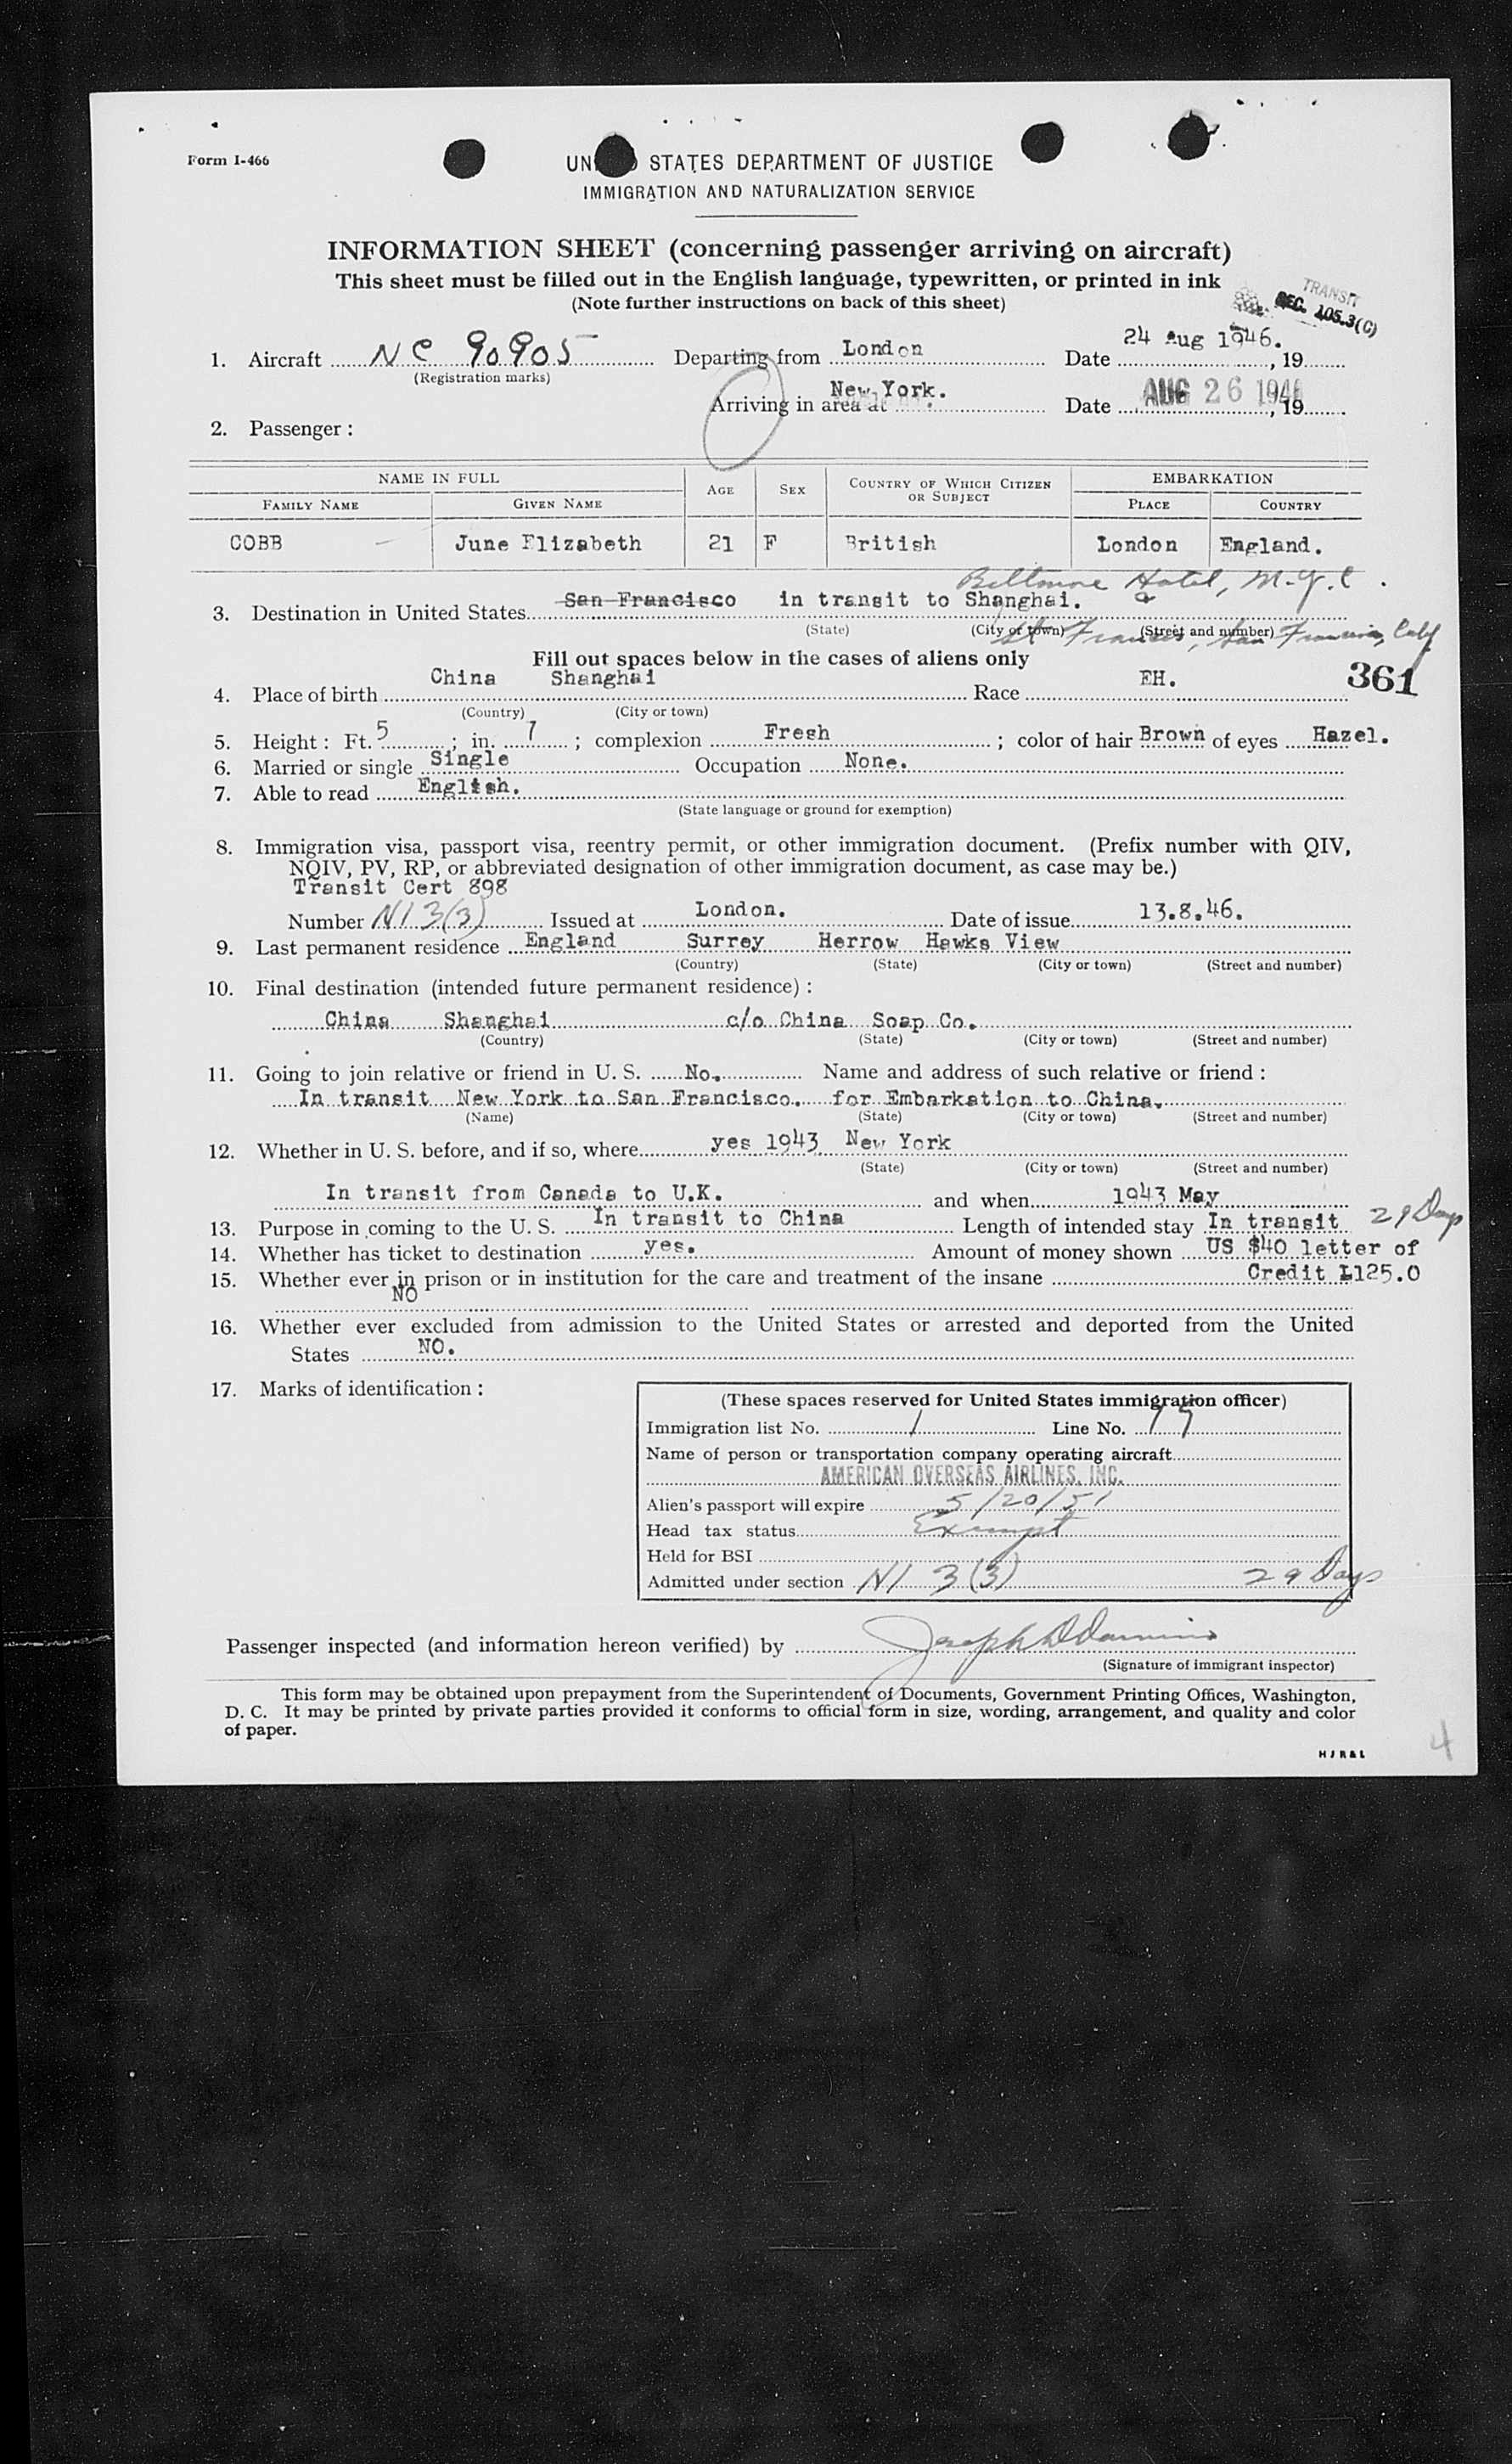 Form I-466
UN D STATES DEPARTMENT OF JUSTICE
IMMIGRATION AND NATURALIZATION SERVICE
INFORMATION SHEET (concerning passenger arriving on aircraft)
This sheet must be filled out in the English language, typewritten, or printed in ink
(Note further instructions on back of this sheet)
TRANSIT
SEC. 105.3(C)
1. Aircraft NC 90905 Departing from London Date 24 Aug 1946. , 19
(Registration marks)
Arriving in area at New York. Date AUG 26 1946 , 19
2. Passenger :
NAME IN FULL AGE SEX COUNTRY OF WHICH CITIZEN OR SUBJECT EMBARKATION
FAMILY NAME GIVEN NAME PLACE COUNTRY
COBB - June Elizabeth 21 F British London England.
Biltmore Hotel, N.Y.C.
3. Destination in United States San Francisco in transit to Shanghai.
(State) (City or town) (Street and number)
St Frances, San Francisco, Calif
Fill out spaces below in the cases of aliens only
361
4. Place of birth China Shanghai Race EH.
(Country) (City or town)
5. Height : Ft. 5 ; in. 7 ; complexion Fresh ; color of hair Brown of eyes Hazel.
6. Married or single Single Occupation None.
7. Able to read English.
(State language or ground for exemption)
8. Immigration visa, passport visa, reentry permit, or other immigration document. (Prefix number with QIV,
NQIV, PV, RP, or abbreviated designation of other immigration document, as case may be.)
Transit Cert 898
Number NI 3(3) Issued at London. Date of issue 13.8.46.
9. Last permanent residence England Surrey Herrow Hawks View
(Country) (State) (City or town) (Street and number)
10. Final destination (intended future permanent residence) :
China Shanghai c/o China Soap Co.
(Country) (State) (City or town) (Street and number)
11. Going to join relative or friend in U. S. No. Name and address of such relative or friend :
In transit New York to San Francisco. for Embarkation to China.
(Name) (State) (City or town) (Street and number)
12. Whether in U. S. before, and if so, where yes 1943 New York
(State) (City or town) (Street and number)
In transit from Canada to U.K. and when 1943 May
13. Purpose in coming to the U. S. In transit to China Length of intended stay In transit 29 Days
14. Whether has ticket to destination yes. Amount of money shown US $40 letter of
15. Whether ever in prison or in institution for the care and treatment of the insane Credit L125.0
NO
16. Whether ever excluded from admission to the United States or arrested and deported from the United
States NO.
17. Marks of identification :
(These spaces reserved for United States immigration officer)
Immigration list No. 1 Line No. 15
Name of person or transportation company operating aircraft
AMERICAN OVERSEAS AIRLINES, INC.
Alien's passport will expire 5/20/51
Head tax status Exempt
Held for BSI
Admitted under section NI 3(3) 29 Days
Passenger inspected (and information hereon verified) by Joseph
(Signature of immigrant inspector)
This form may be obtained upon prepayment from the Superintendent of Documents, Government Printing Offices, Washington,
D. C. It may be printed by private parties provided it conforms to official form in size, wording, arrangement, and quality and color
of paper.
HJR&L
4